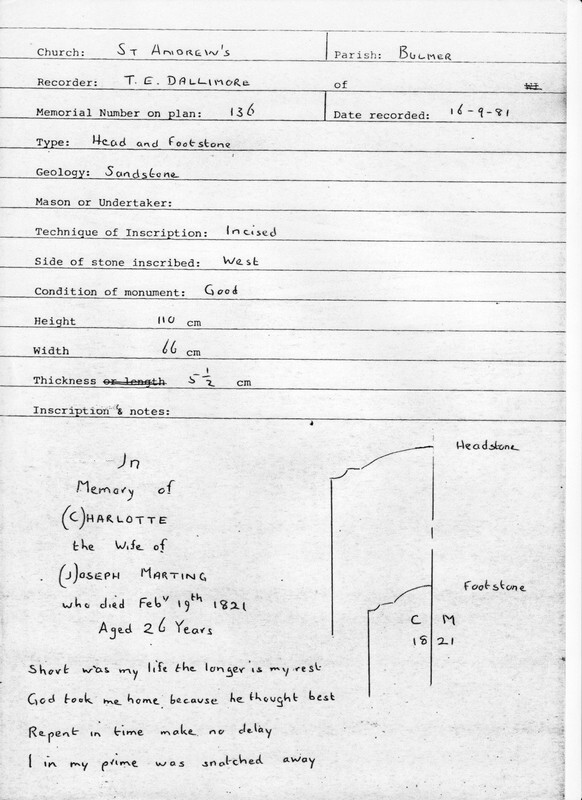 Church: ST ANDREW'S Parish: BULMER
Recorder: T. E. DALLIMORE of
Memorial Number on plan: 136 Date recorded: 16-9-81
Type: Head and Footstone
Geology: Sandstone
Mason or Undertaker:
Technique of Inscription: Incised
Side of stone inscribed: West
Condition of monument: Good
Height 110 cm
Width 66 cm
Thickness or length 5 1/2 cm
Inscription & notes:
In
Memory of
(C)HARLOTTE
the Wife of
(J)OSEPH MARTING
who died Febʸ 19ᵗʰ 1821
Aged 26 Years
Short was my life the longer is my rest
God took me home because he thought best
Repent in time make no delay
I in my prime was snatched away
Headstone
Footstone
C M
18 21